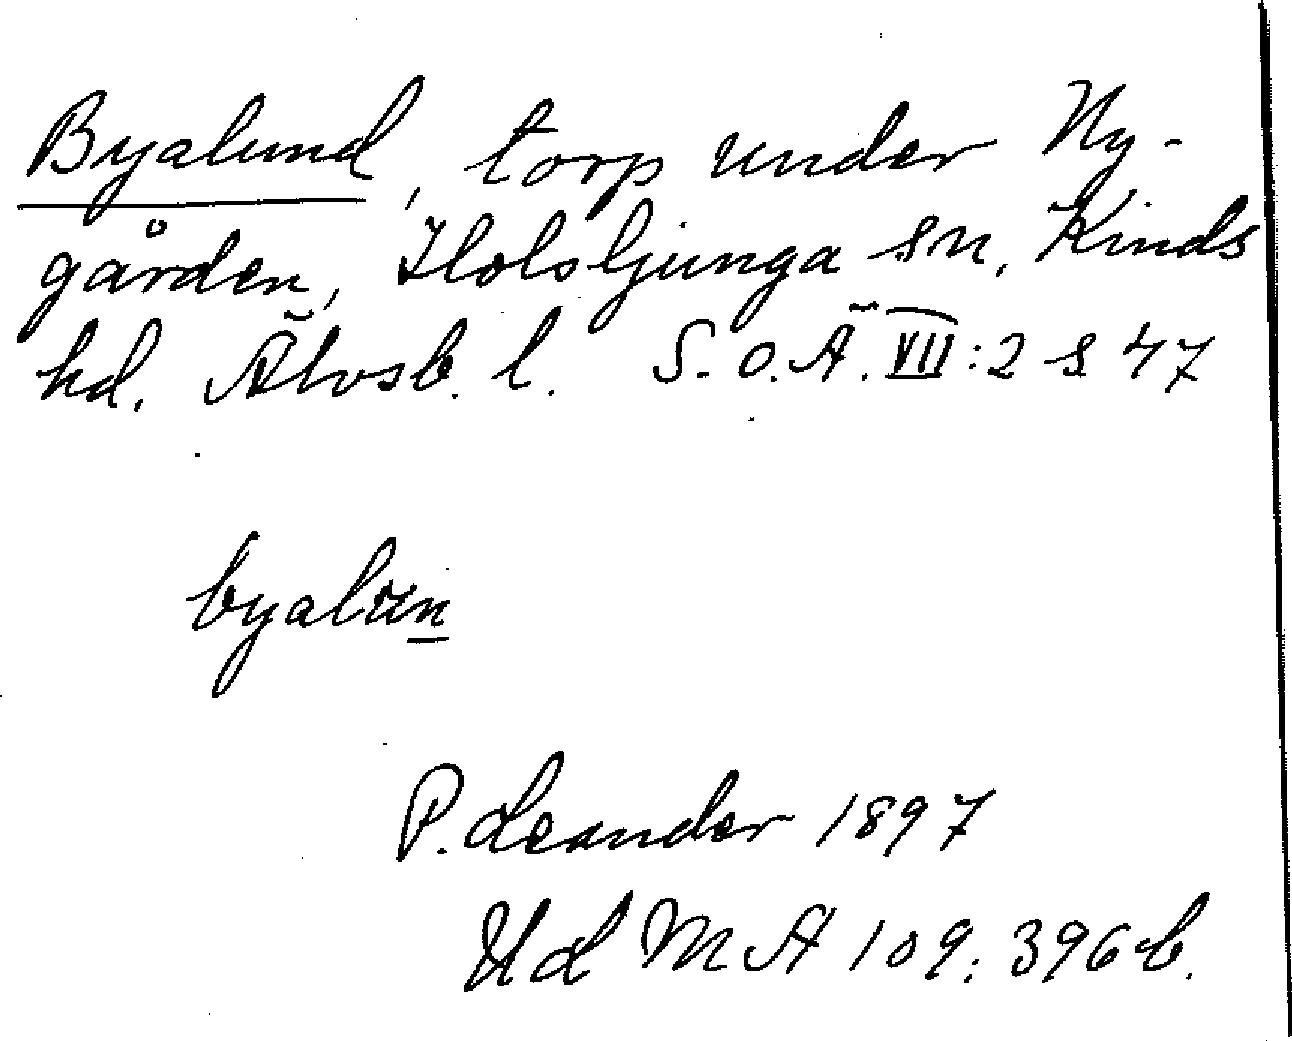 Byalund, torp under Ny-
gården, Holsljunga sn, Kinds
hd. Älvsb. l. S.O.Ä. VII:2 s 47
byalun
P. Leander 1897
ULMA 109: 396 b.